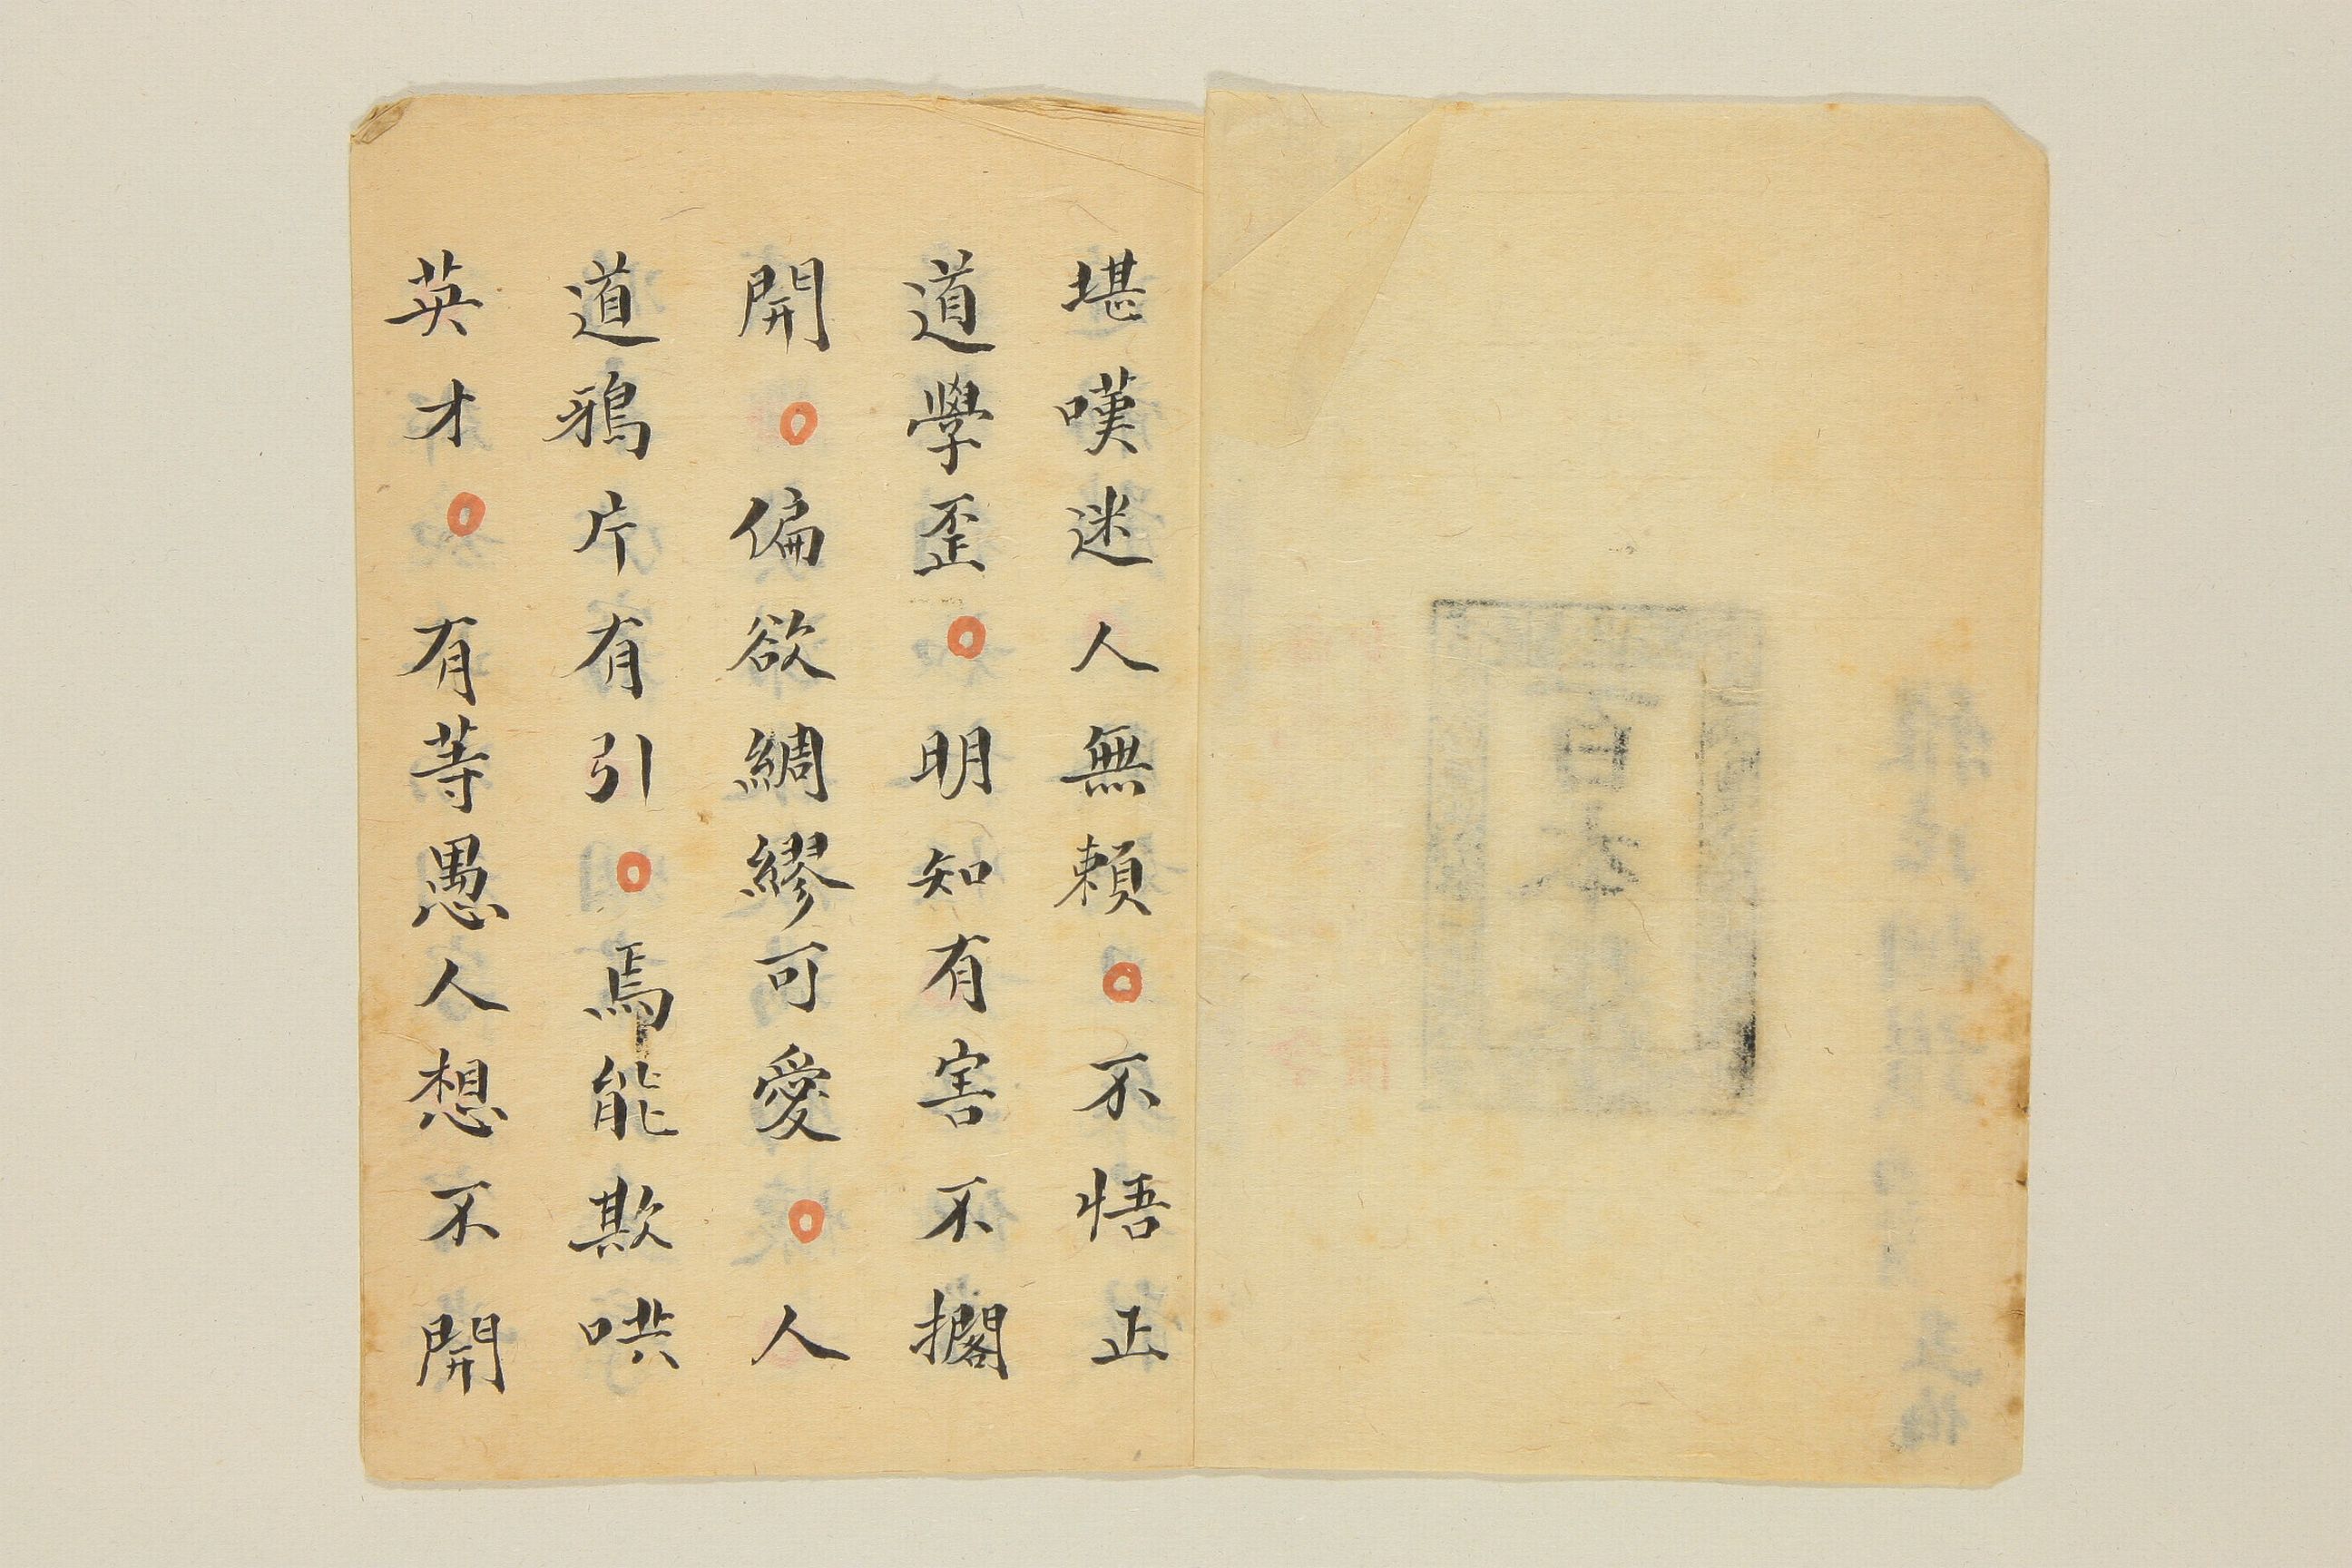 堪嘆迷人無頼○不悟正
道學歪○明知有害不擱
開○偏欲綢繆可愛○人
道鴉片有引○焉能欺哄
英才○有等愚人想不開